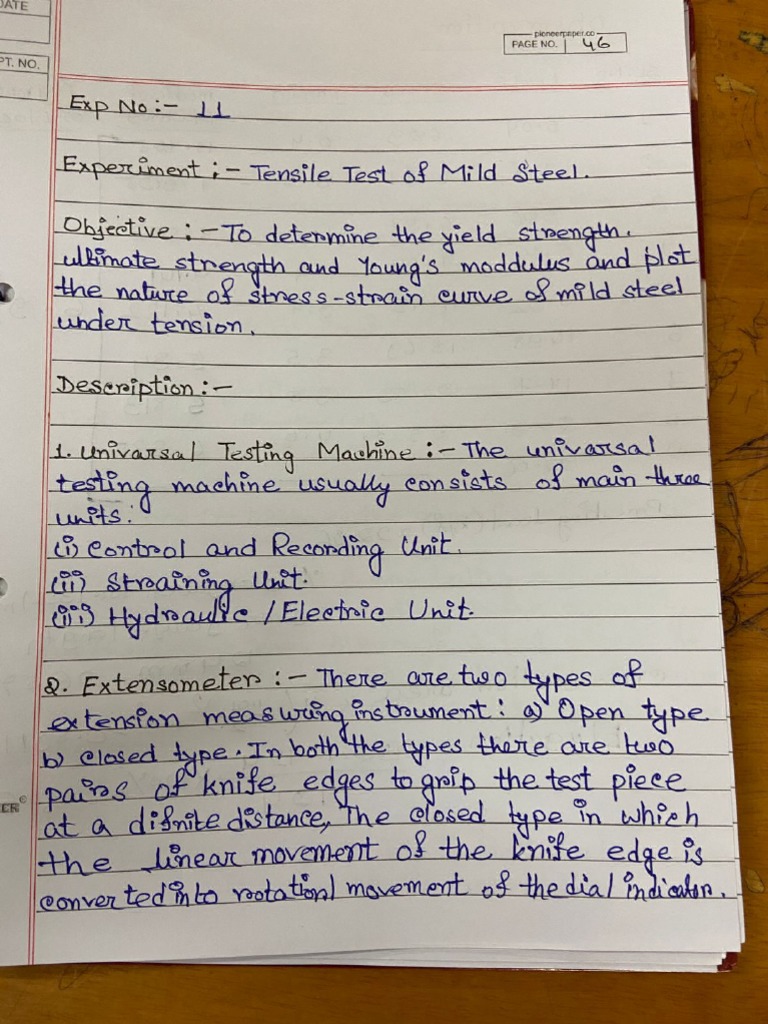 DATE
PT. NO.
pioneerpaper.co
PAGE NO. 46
Exp No :- 11
Experiment :- Tensile Test of Mild Steel.
Objective :- To determine the yield strength.
ultimate strength and Young's moddulus and plot
the nature of stress-strain curve of mild steel
under tension.
Description :-
1. Univarsal Testing Machine :- The univarsal
testing machine usually consists of main three
units:
(i) Control and Recording Unit.
(ii) Straining Unit.
(iii) Hydraulic / Electric Unit.
2. Extensometer :- There are two types of
extension measuring instrument: a) Open type
b) closed type. In both the types there are two
pairs of knife edges to grip the test piece
at a difnite distance, The closed type in which
the linear movement of the knife edge is
converted into rotational movement of the dial indicator.